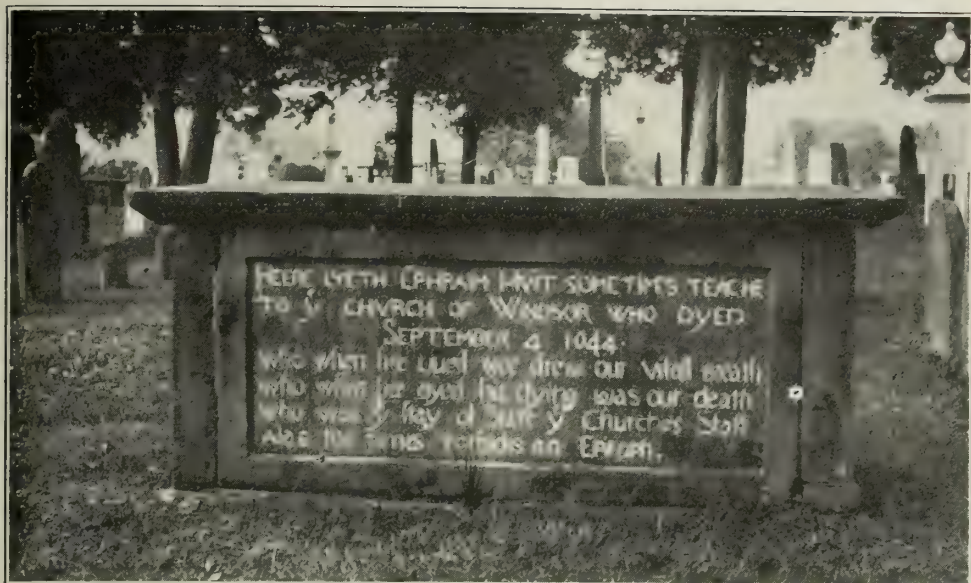 HEERE LYETH EPHRAIM HVIT SOMETIMES TEACHE
TO Yᵉ CHVRCH OF WINDSOR WHO DYED
SEPTEMBER 4 1644
who when hee lived wee drew our vitall breath
who when hee dyed his dying was our death
who was yᵉ stay of State yᵉ Churches Staff
Alas the times forbids an